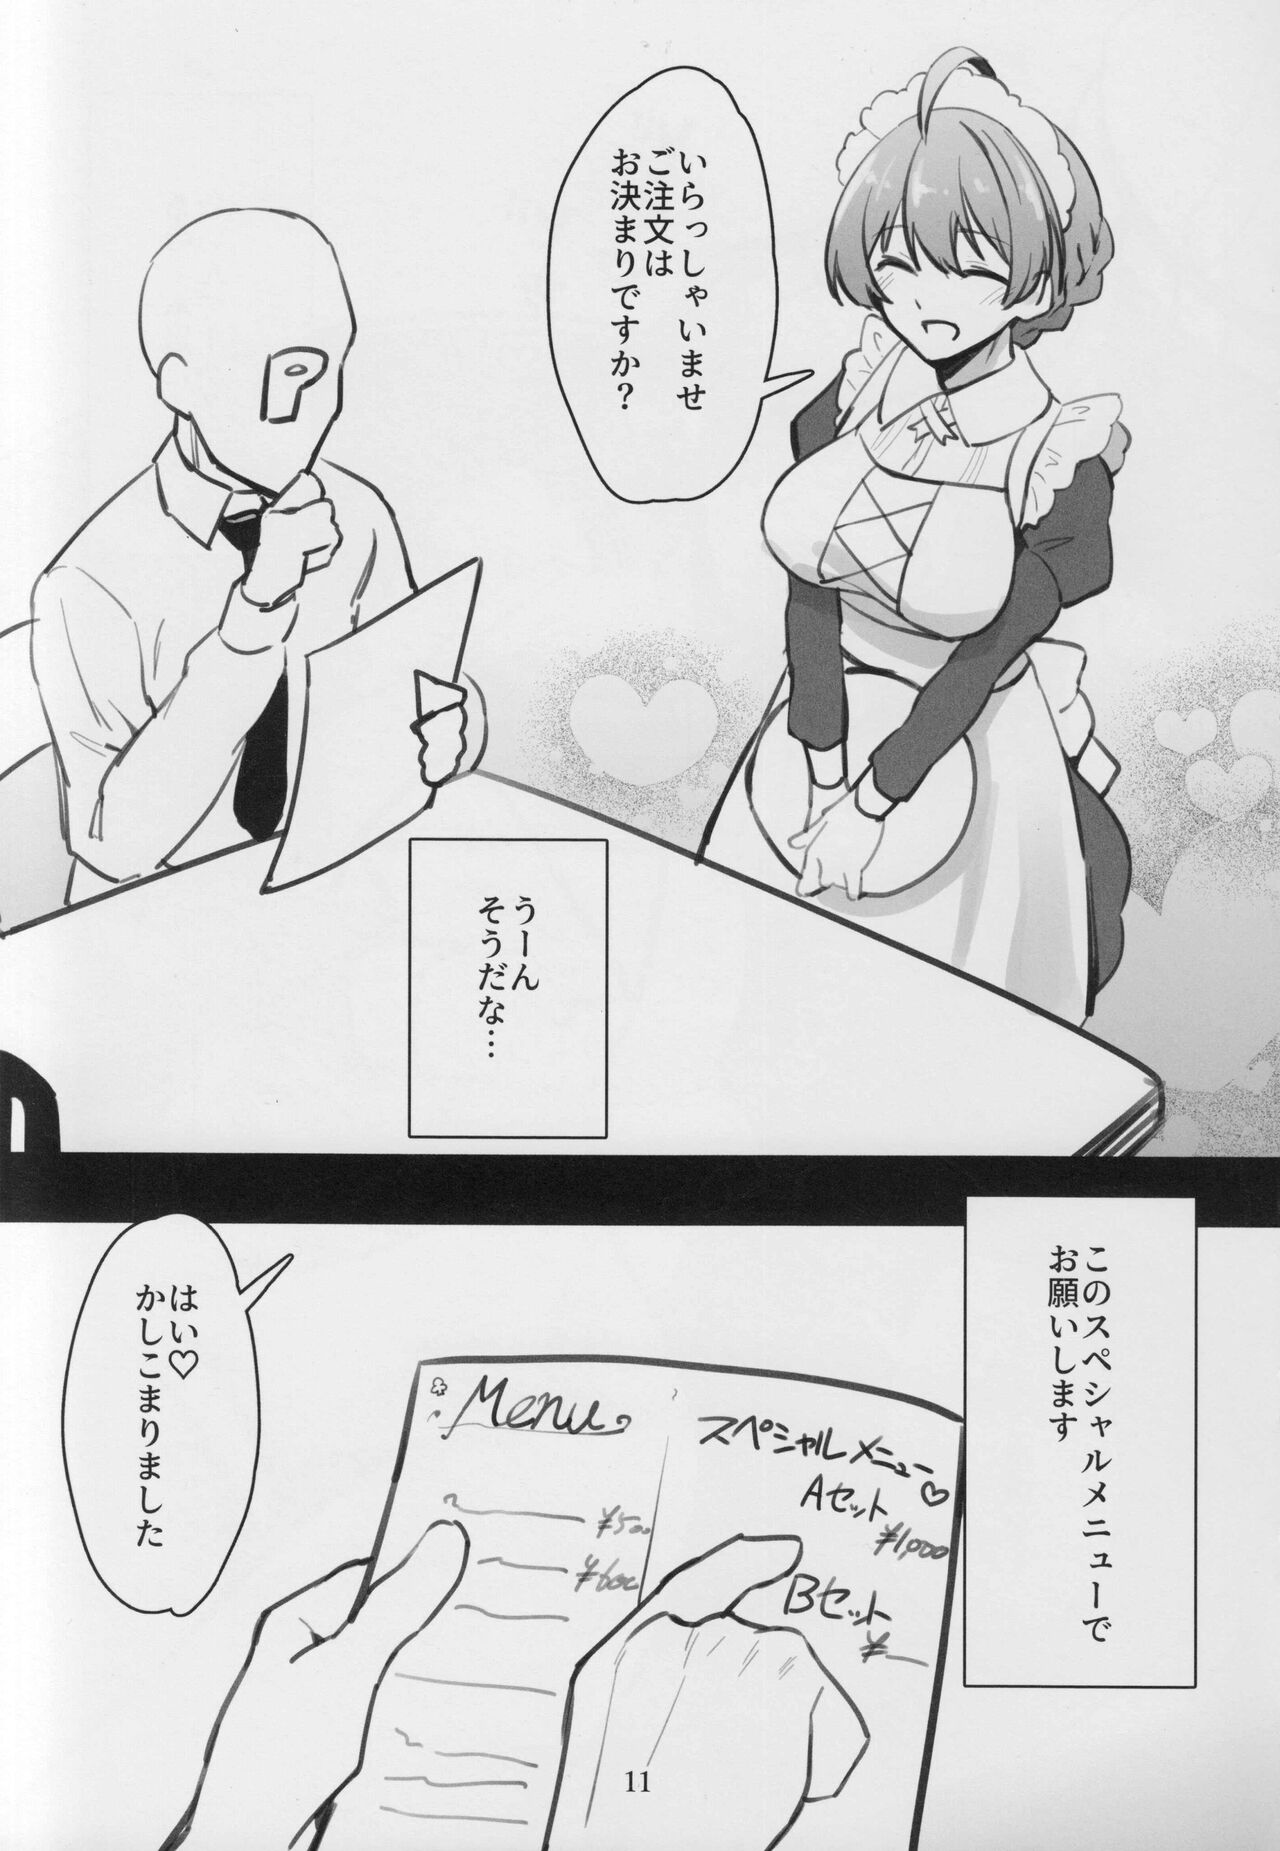 いらっしゃいませ
ご注文は
お決まりですか?
P
うーん
そうだな…
このスペシャルメニューで
お願いします
はい♡
かしこまりました
Menu
¥500
¥600
スペシャルメニュー♡
Aセット
¥1,000
Bセット
¥
11